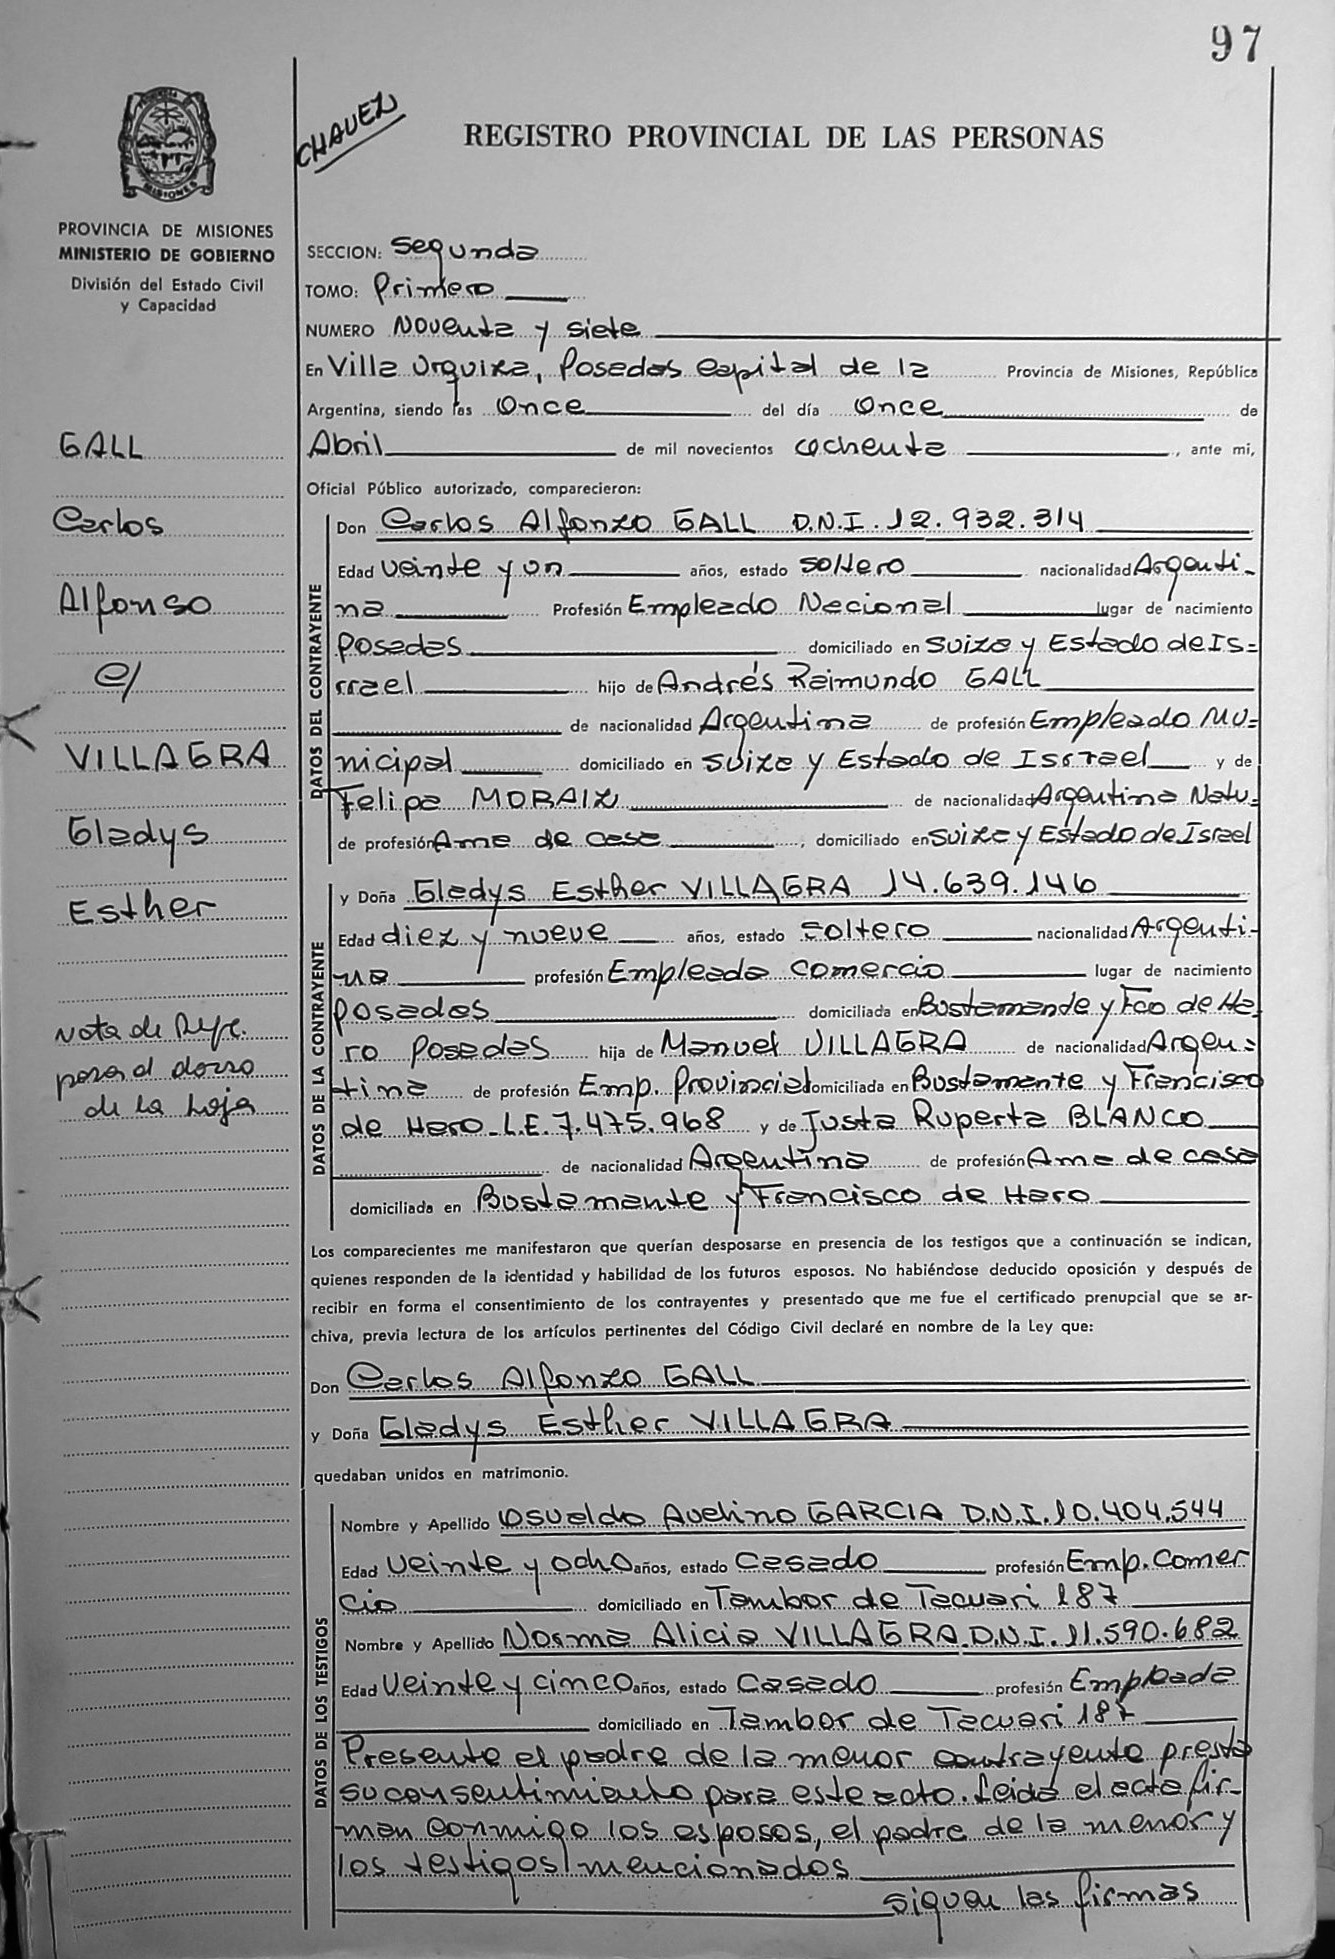 97
CHAVEZ
REGISTRO PROVINCIAL DE LAS PERSONAS
MISIONES
PROVINCIA DE MISIONES
MINISTERIO DE GOBIERNO
División del Estado Civil
y Capacidad
GALL
Carlos
Alfonso
c/
VILLAGRA
Gladys
Esther
Nota de Refe.
pasa al dorso
de la hoja
SECCION: Segunda
TOMO: Primero
NUMERO Noventa y siete
En Villa Urquiza, Posadas Capital de la Provincia de Misiones, República
Argentina, siendo las Once del día Once de
Abril de mil novecientos ochenta, ante mi,
Oficial Público autorizado, comparecieron:
DATOS DEL CONTRAYENTE
Don Carlos Alfonzo GALL D.N.I. 12.932.314
Edad veinte y un años, estado soltero nacionalidad Argenti-
na Profesión Empleado Nacional lugar de nacimiento
Posadas domiciliado en Suiza y Estado de Is=
rrael hijo de Andrés Raimundo GALL
de nacionalidad Argentina de profesión Empleado Mu=
nicipal domiciliado en Suiza y Estado de Issrael y de
Felipa MORAIZ de nacionalidad Argentina Natu=
de profesión Ama de casa, domiciliado en Suiza y Estado de Israel
DATOS DE LA CONTRAYENTE
y Doña Gladys Esther VILLAGRA 14.639.146
Edad diez y nueve años, estado soltero nacionalidad Argenti-
na profesión Empleada comercio lugar de nacimiento
Posadas domiciliada en Bustamande y Fco de Ha-
ro Posadas hija de Manuel VILLAGRA de nacionalidad Argen=
tina de profesión Emp. Provincial domiciliada en Bustamante y Francisco
de Haro - L.E. 7.475.968 y de Justa Ruperta BLANCO
de nacionalidad Argentina de profesión Ama de casa
domiciliada en Bustamante y Francisco de Haro
Los comparecientes me manifestaron que querían desposarse en presencia de los testigos que a continuación se indican,
quienes responden de la identidad y habilidad de los futuros esposos. No habiéndose deducido oposición y después de
recibir en forma el consentimiento de los contrayentes y presentado que me fue el certificado prenupcial que se ar-
chiva, previa lectura de los artículos pertinentes del Código Civil declaré en nombre de la Ley que:
Don Carlos Alfonzo GALL
y Doña Gladys Esther VILLAGRA
quedaban unidos en matrimonio.
DATOS DE LOS TESTIGOS
Nombre y Apellido Osvaldo Avelino GARCIA D.N.I. 10.404.544
Edad veinte y ocho años, estado Casado profesión Emp. Comer
cio domiciliado en Tambor de Tacuari 187
Nombre y Apellido Norma Alicia VILLAGRA. D.N.I. 11.590.682
Edad Veinte y cinco años, estado Casado profesión Empleada
domiciliado en Tambor de Tacuari 187
Presente el padre de la menor contrayente presta
su consentimiento para este acto. Leida el acta fir-
man conmigo los esposos, el padre de la menor y
los testigos mencionados
siguen las firmas